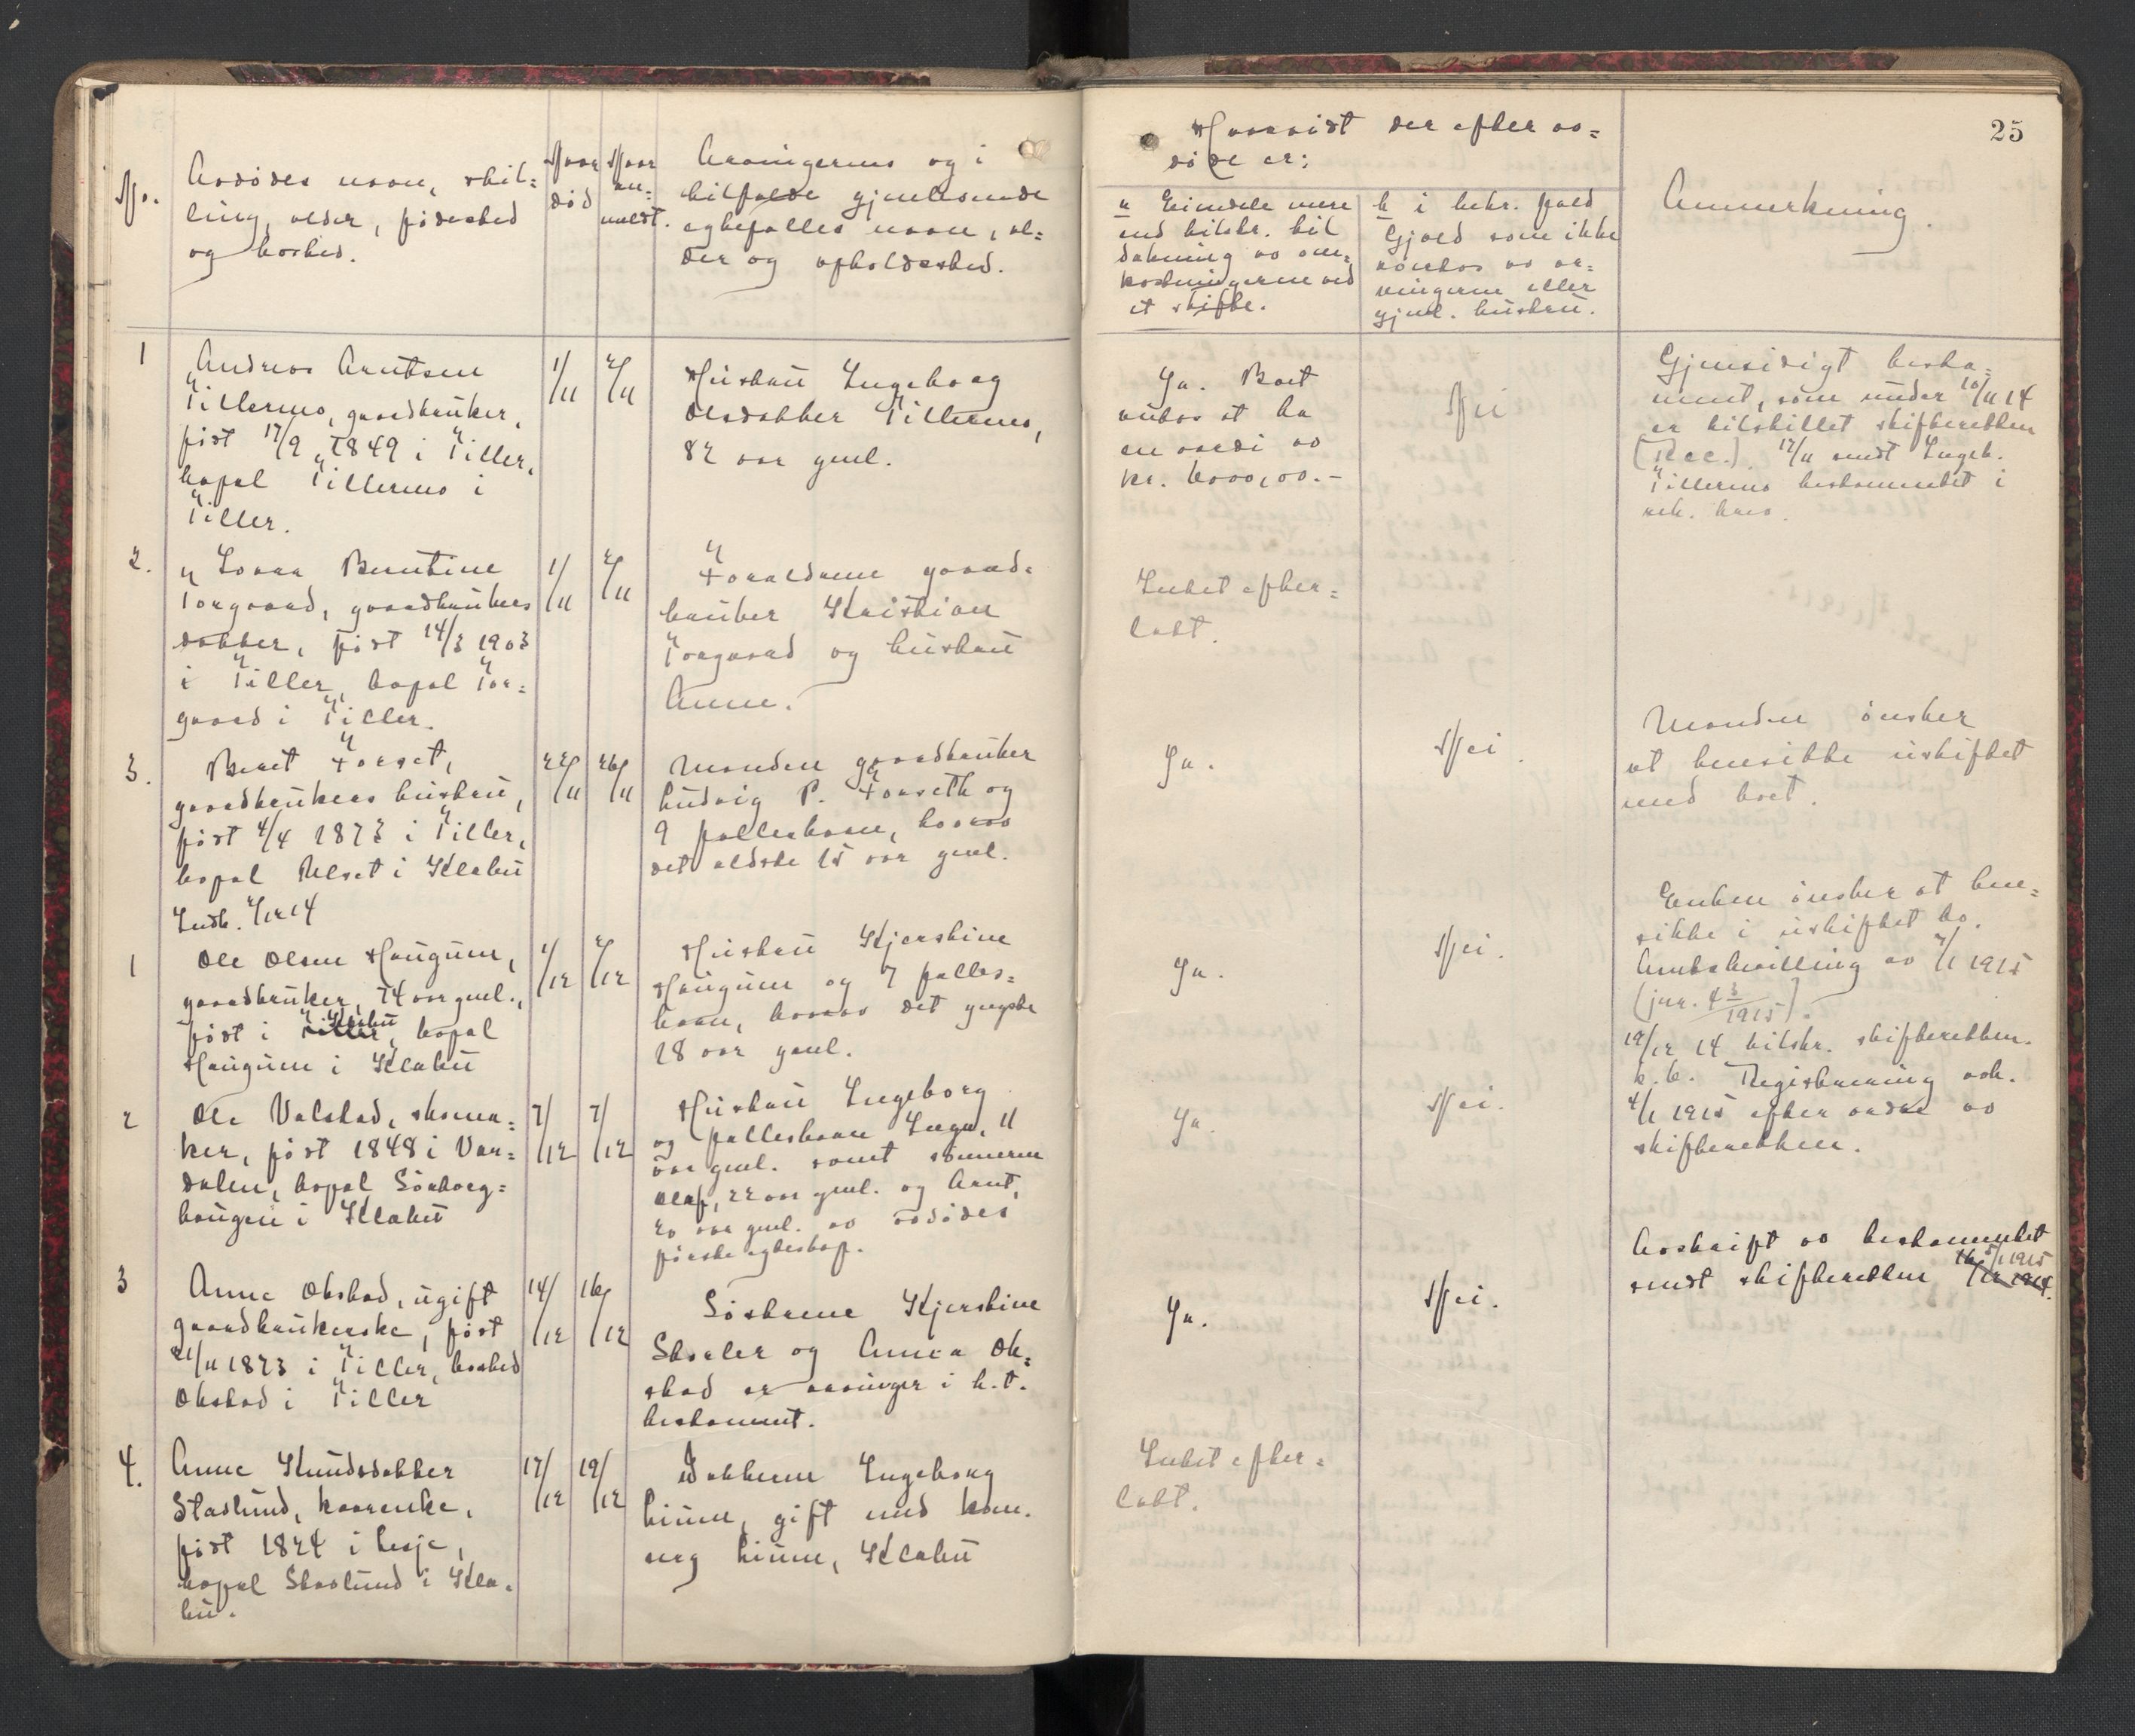 25
No.
Avdödes navn, stil=
ling, alder, födested
og bosted.
Naar
död
Naar
an=
meldt.
Arvingernes og i
tilfælde gjenlevende
egtefælles navn, al=
der og opholdssted.
Hvorvidt der efter av=
döde er:
a Eiendele mere
end tilstr. til
dækning av om=
kostningerne ved
et skifte.
b i bekr. fald
Gjæld som ikke
overtas av ar=
vingerne eller
gjenl. hustru.
Anmerkning.
1
Andreas Arntsen
Tillermo, gaardbruker,
föst 17/9 1849 i Tiller,
bopæl Tillermo i
Tiller.
1/11
2/11
Hustru Ingeborg
Olsdatter Tillermo,
82 aar gml.
Ja. Boet
antas at ha
en værdi av
kr. 6000,00.-
Nei
Gjensidigt testa=
ment, som under 10/11 14
er tilstillet skifteretten
(Rec.). 17/11 sendt Ingeb.
Tillermo testamentet i
rek. brev.
2.
Lovra Berntine
Torgaard, gaardbrukers
datter, föst 14/3 1903
i Tiller, bopæl Tor=
gaard i Tiller.
1/11
2/11
Forældrene gaard=
bruker Kristian
Torgaard og hustru
Anne.
Intet efter=
latt.
3.
Beret Forset,
gaardbrukers hustru,
föst 4/4 1873 i Tiller,
bopæl Ulset i Klæbu
Indb. 2/12 14
22/11
26/11
Manden gaardbruker
Ludvig P. Forseth og
9 fællesbarn, hvorav
det ældste 15 aar gml.
Ja.
Nei.
Manden önsker
at hensitte uskiftet
med boet.
1
Ole Olsen Haugum,
gaardbruker, 74 aar gml.,
föst i Tiller Klæbu, bopæl
Haugum i Klæbu
1/12
2/12
Hustru Kjerstine
Haugum og 7 fælles=
barn, hvorav det yngste
18 aar gml.
Ja.
Nei.
Enken önsker at hen=
sitte i uskiftet bo.
Amtsbevilling av 2/1 1915
(jnr. 4 3/1915).
2
Ole Valstad, skoma=
ker, föst 1848 i Vær=
dalen, bopæl Sörborg=
haugen i Klæbu
7/12
7/12
Hustru Ingeborg
og fællesbarn Inga, 11
aar gml. samt sönnerne
Olaf, 22 aar gml. og Arnt,
20 aar gml. av avdödes
förste egteskap.
Ja.
Nei.
19/12 14 tilskr. skifteretten.
b.b. Registrering avh.
4/1 1915 efter ordre av
skifteretten.
3
Anne Okstad, ugift
gaardbrukerske, föst
21/11 1873 i Tiller, bosted
Okstad i Tiller
14/12
16/12
Söstrene Kjerstine
Skreler og Annea Ok=
stad er arvinger i h.t.
testament.
Ja.
Nei.
Avskrift av testamentet
sendt skifteretten 16/12 1914. 5/1 1915
4.
Anne Knudsdatter
Stavlund, kaarenke,
föst 1824 i Lesje,
bopæl Stavlund i Klæ=
bu.
17/12
19/12
Datteren Ingeborg
Lium, gift med kom.
arg Lium, Klæbu
Intet efter=
latt.